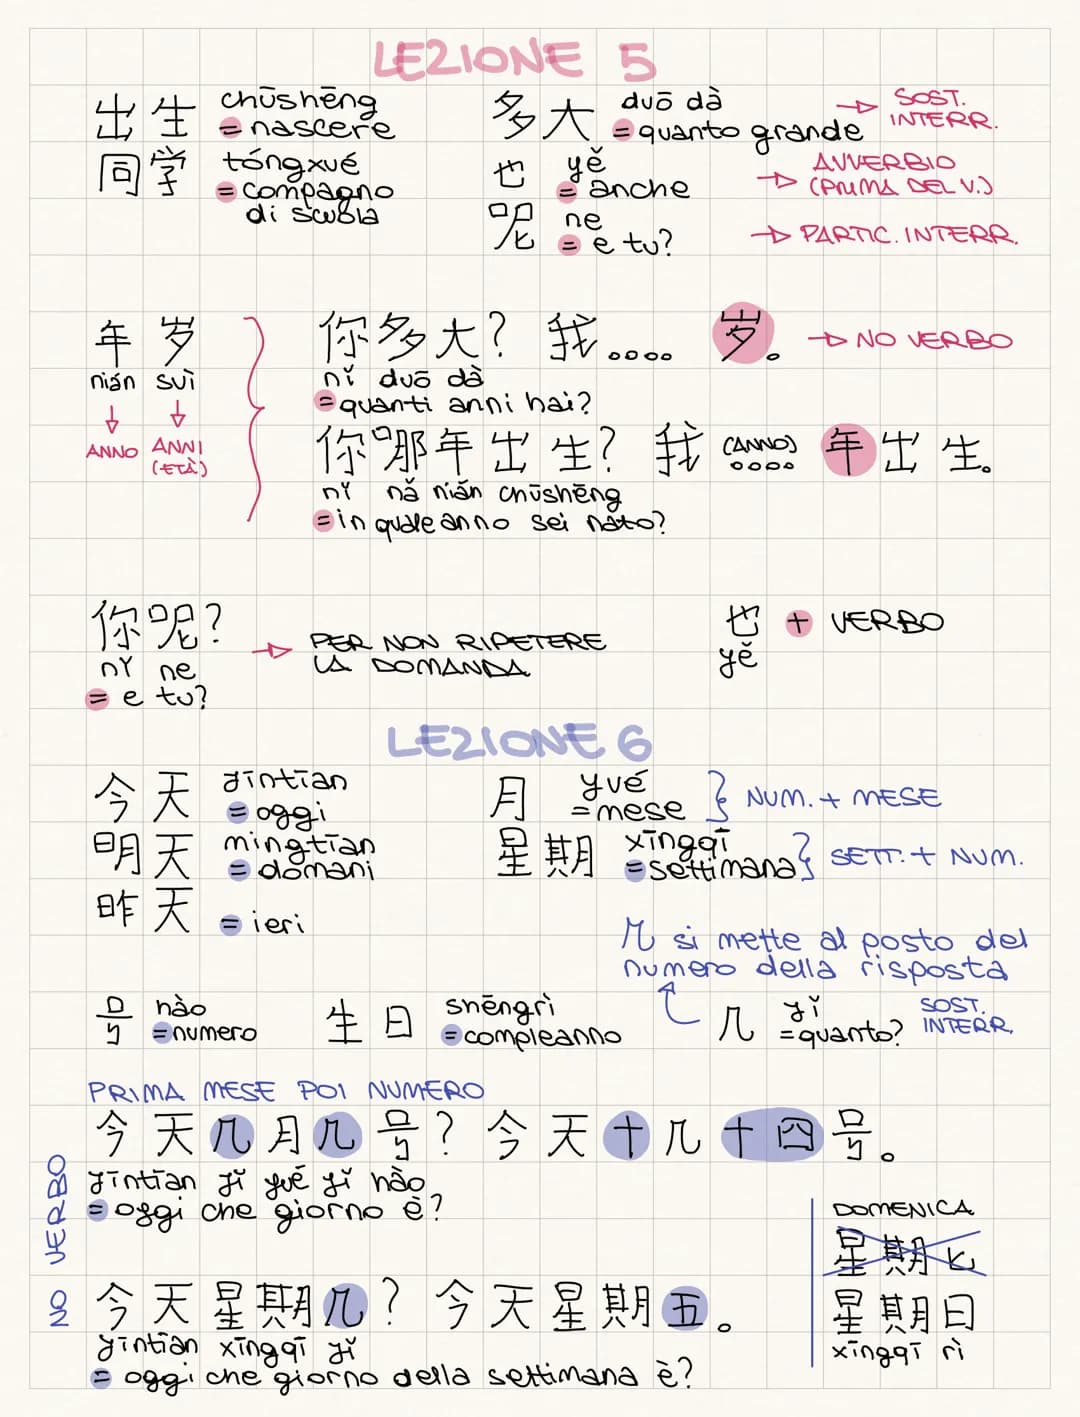 LEZIONE 5
出生 chūshēng
= nascere
同学 tóngxué
= compagno
di scuola
多大 duō dà
= quanto grande
→ SOST.
INTERR.
也 yě
= anche
→ AVVERBIO
(PRIMA DEL V.)
呢 ne
= e tu?
→ PARTIC. INTERR.
年 岁
nián suì
ANNO ANNI
(ETÀ)
你多大? 我.... 岁。 → NO VERBO
nǐ duō dà
= quanti anni hai?
你哪年出生? 我 (ANNO) .... 年出生。
nǐ nǎ nián chūshēng
= in quale anno sei nato?
你呢?
nǐ ne
= e tu?
→ PER NON RIPETERE
LA DOMANDA
也 + VERBO
yě
LEZIONE 6
今天 jīntīan
= oggi
明天 mingtīan
= domani
昨天 = ieri
月 yvé
= mese } NUM. + MESE
星期 xīngqī
= settimana } SETT. + NUM.
几 si mette al posto del
numero della risposta
号 hào
= numero
生日 shēngrì
= compleanno
几 jǐ
= quanto?
SOST.
INTERR.
PRIMA MESE POI NUMERO
今天几月几号? 今天十几十四号。
jīntīan jǐ yué jǐ hào
= oggi che giorno è?
NO VERBO
今天星期几? 今天星期五。
jīntīan xīngqī jǐ
= oggi che giorno della settimana è?
DOMENICA
星期七
星期日
xīngqī rì